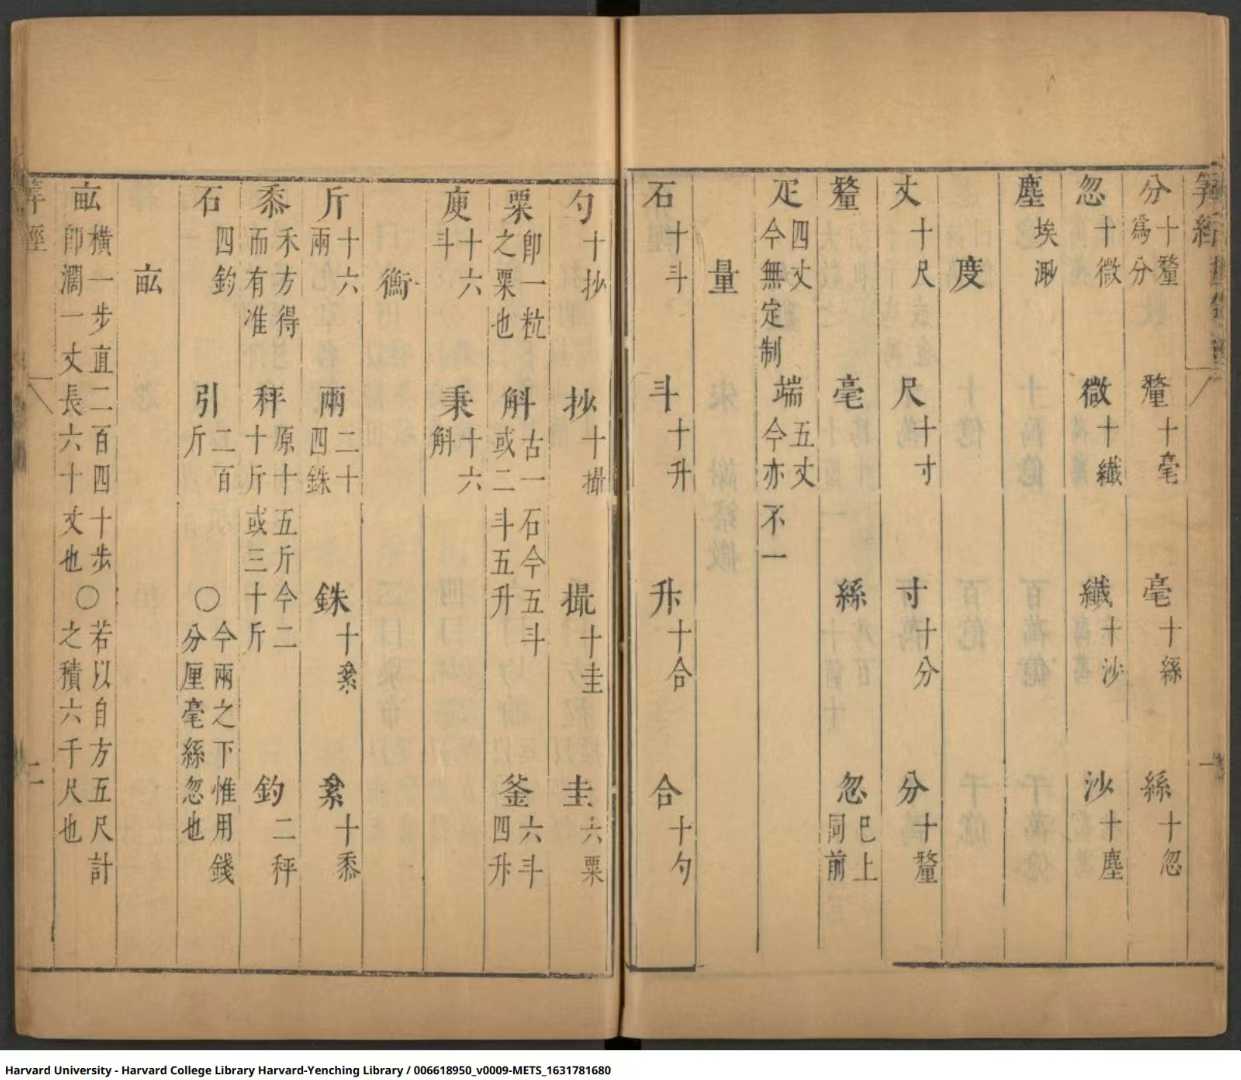 分十釐為分 釐十毫 毫十絲 絲十忽
忽十微 微十纖 纖十沙 沙十塵
塵埃渺
度
丈十尺 尺十寸 寸十分 分十釐
釐 毫 絲 忽巳上同前
疋四丈今無定制 端五丈今亦不一
量
石十斗 斗十升 升十合 合十勺
勺十抄 抄十撮 撮十圭 圭六粟
粟即一粒之粟也 斛古一石今五斗或二斗五升 釜六斗四升
庾十六斗 秉十六斛
衡
斤十六兩 兩二十四銖 銖十絫 絫十黍
黍禾方得而有准 秤原十五斤今二十斤或三十斤 鈞二秤
石四鈞 引二百斤 ○今兩之下惟用錢分厘毫絲忽也
畝
畝橫一步直二百四十步即濶一丈長六十丈也○若以自方五尺計之積六千尺也
二
Harvard University - Harvard College Library Harvard-Yenching Library / 006618950_v0009-METS_1631781680